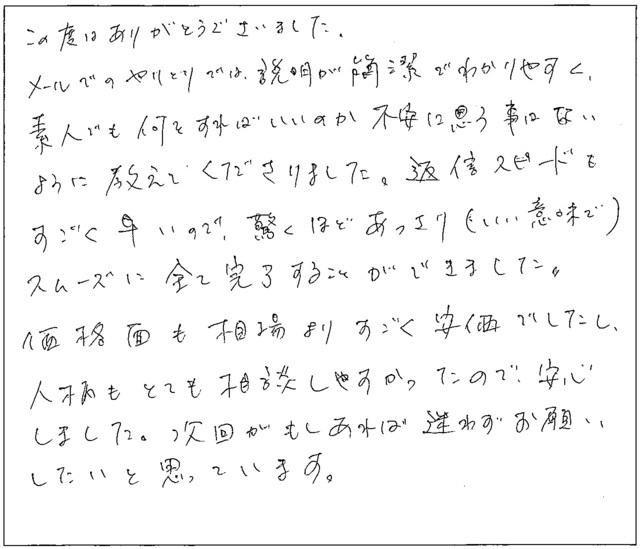 この度はありがとうございました。
メールでのやりとりでは、説明が簡潔でわかりやすく、
素人でも何をすればいいのか不安に思う事はない
ように教えてくださりました。返信スピードも
すごく早いので、驚くほどあっさり(いい意味で)
スムーズに全て完了することができました。
価格面も相場よりすごく安価でしたし、
人柄もとても相談しやすかったので、安心
しました。次回がもしあれば迷わずお願い
したいと思っています。